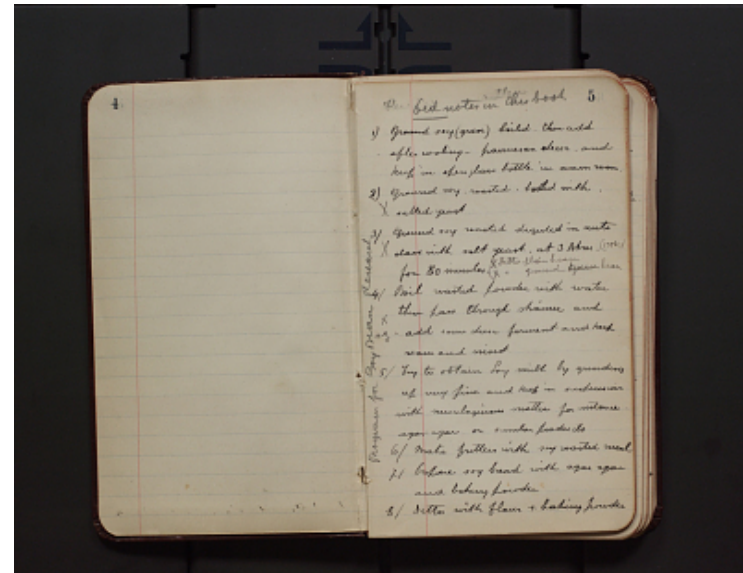 4
Bed notes in this book 5
1) Ground soy (green) boiled. then add
after cooling - parmesan cheese and
keep in open glass bottle in warm room
2) Ground soy roasted - boiled with
X salted yeast
3) Ground soy roasted digested in auto
X clave with salt yeast at 3 Atms
for 80 minutes
4/ Boil roasted powder with water
X then pass through and
add some ferment and keep
warm and moist
5/ Try to obtain Soy milk by grinding
up very fine and keep in suspension
with mucilaginous matter for instance
agar agar or similar products
6/ Make fritters with soy roasted meal
7/ Prepare soy bread with agar agar
and baking powder
8/ Ditto with flour + baking powder
Program for Soy Bean Research